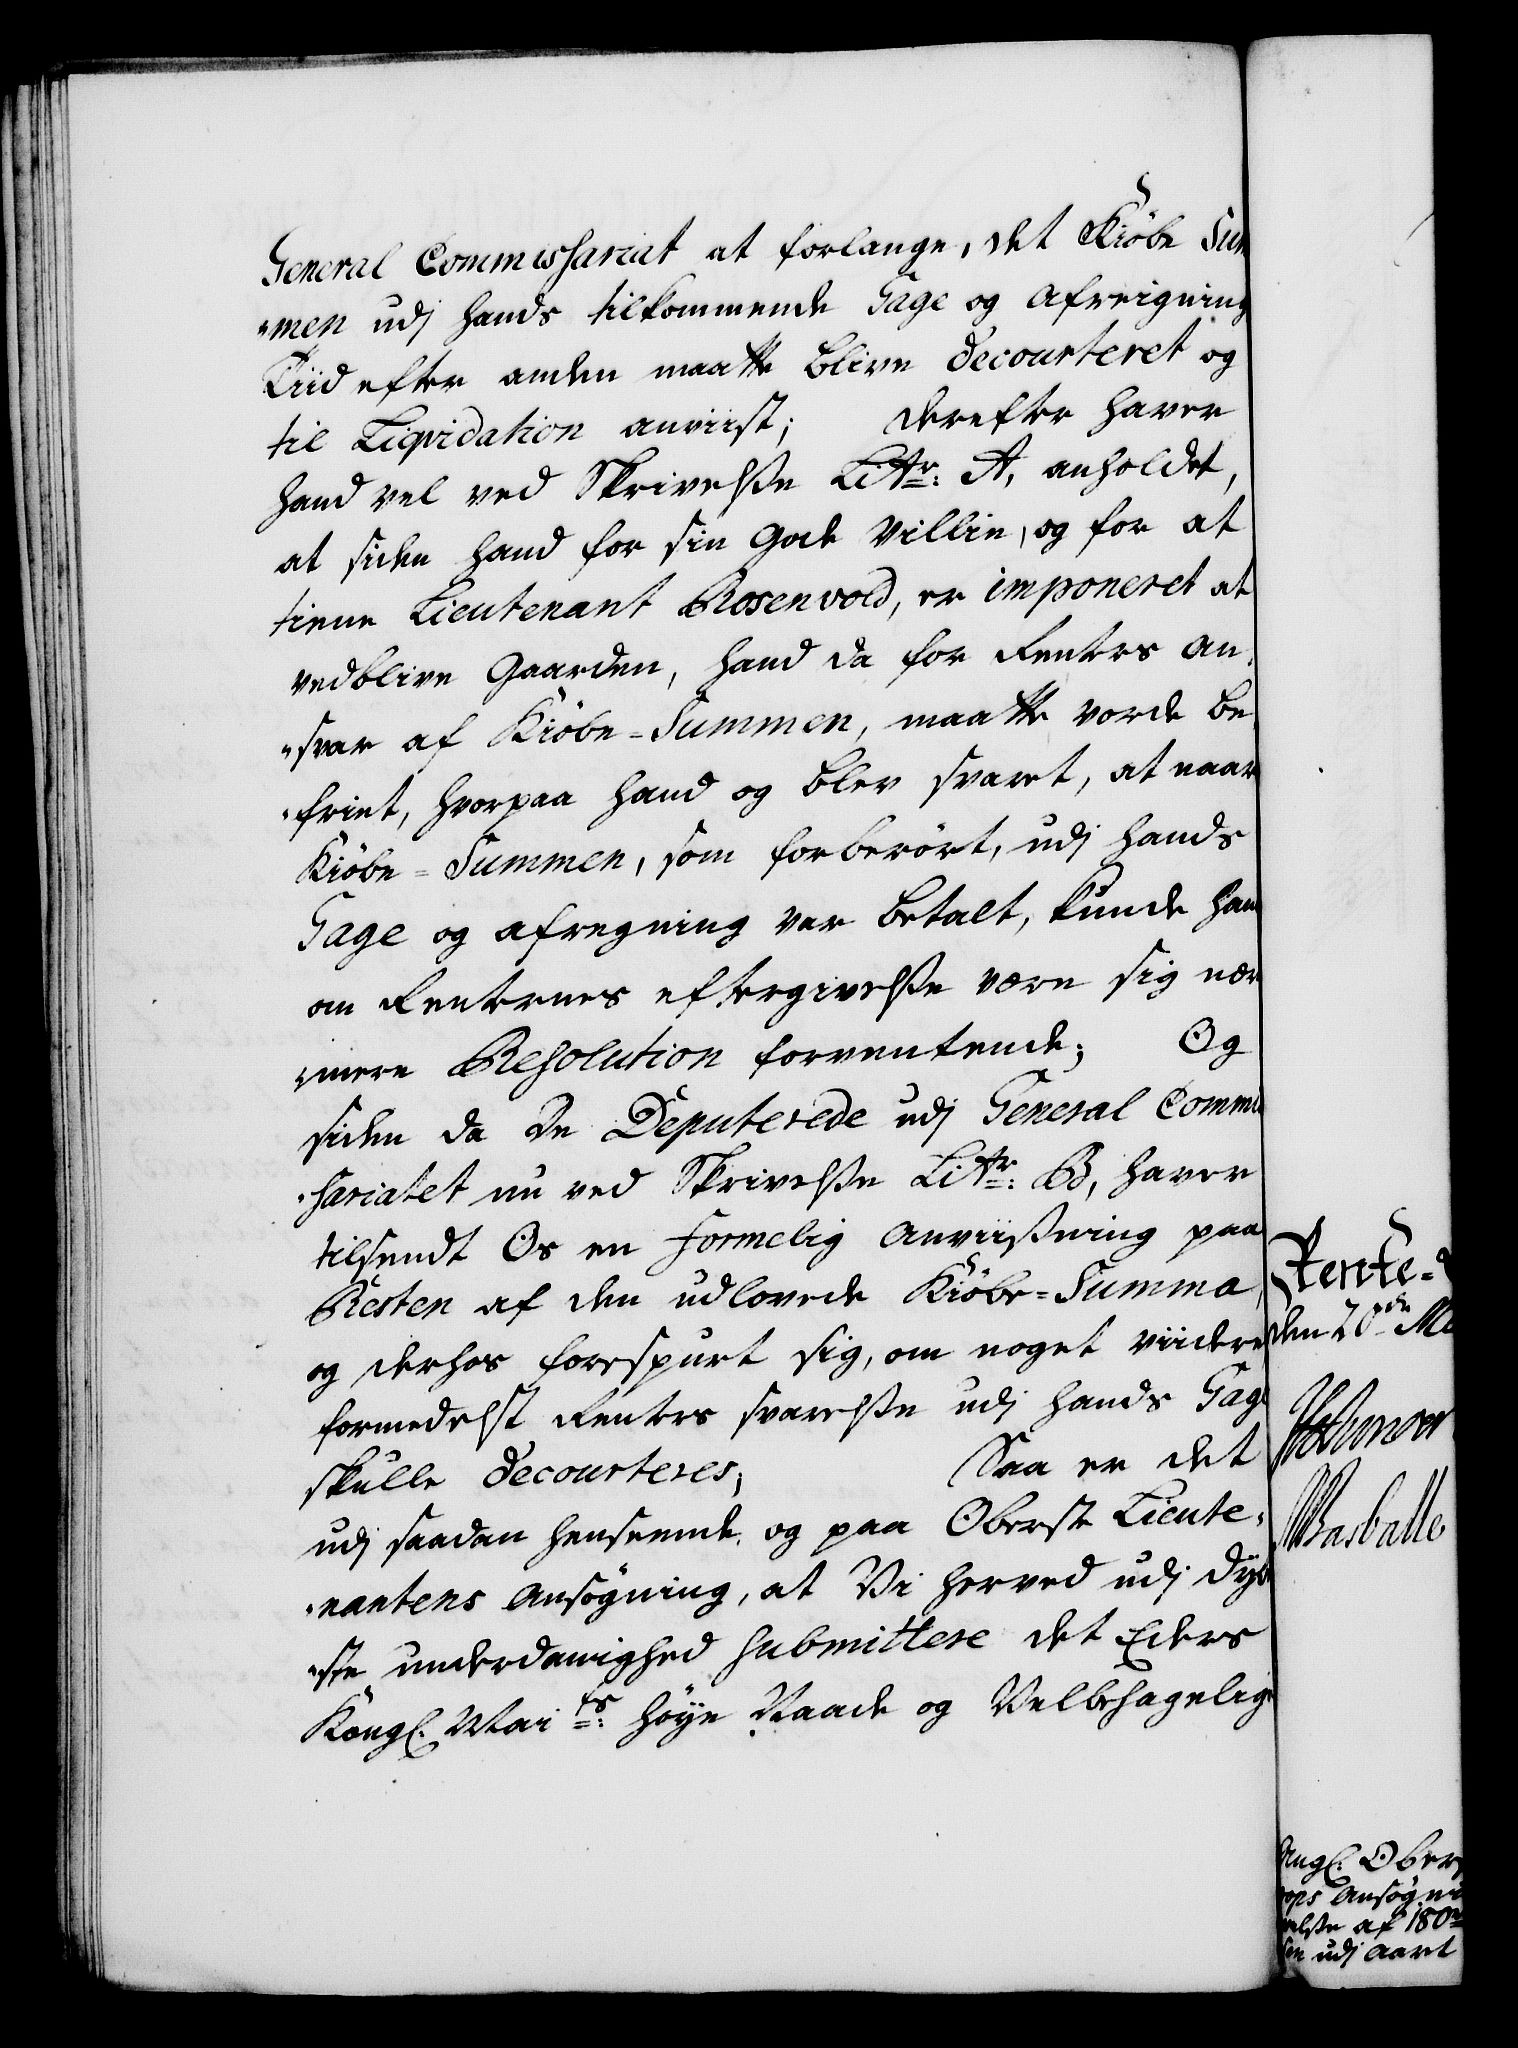 General Commissariat at forlange, det Kiöbe Sum
"men udj hands tilkommende Gage og afreigning
Tiid efter anden maatte blive decourteret og
til Liqvidation anviist; derefter haver
hand vel ved Skrivelsse Littr: A, anholdet,
at siden hand for sin gode Villie, og for at
tiene Lieutenant Rosenvold, er imponeret at
vedblive Gaarden, hand da for Renters an,
"svar af Kiöbe-Summen, maatte vorde be,
"friet, hvorpaa hand og blev svaret, at naar
Kiöbe-Summen, som forberört, udj hands
Gage og afregning var betalt, kunde hand
om Renternes eftergivelsse være sig nær
"mere Resolution forventende; Og
siden da De Deputerede udj General Commis
"sariatet nu ved Skrivelsse Littr: B, haver
tilsendt Os en formelig anviissning paa
Resten af den udlovede Kiöbe-Summa,
og derhos forespurt sig, om noget viidere
formedelst Renters svarelsse udj hands Gage
skulle decourteres; Saa er det
udj saadan henseende, og paa Oberste Lieute,
"nantens ansögning, at Vi herved udj dyb
"ste underdanighed submittere det Eders
Kongl: Mai ts: höye Naade og Velbehagelig
Rente-
den 20de Ma
Basballe
Kongl: Ober
ops ansögni
elsse af 180
en udj aart